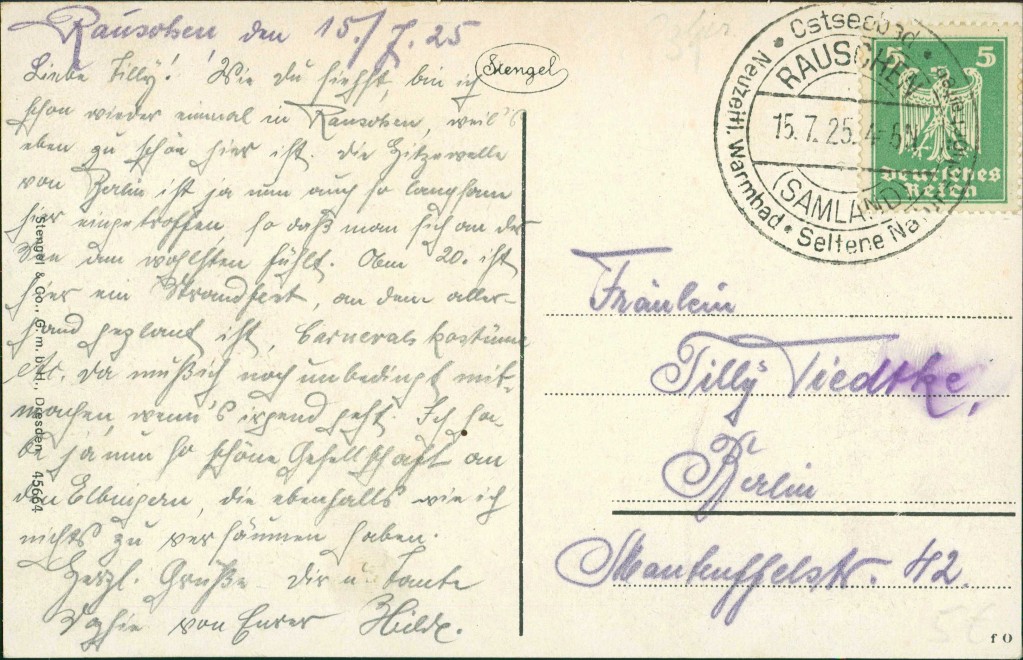 Rauschen den 15./7.25
Liebe Tilly! Wie du siehst, bin ich
schon wieder einmal in Rauschen, weil's
eben zu schön hier ist. Die Hitzewelle
von Berlin ist ja nun auch so langsam
hier eingetroffen so daß man sich an der
See am wohlsten fühlt. Am 20. ist
hier ein Strandfest, an dem aller-
hand geplant ist, Carnevalskostüme
etc. da muß ich noch unbedingt mit-
machen, wenn's irgend geht. Ich ha-
be ja nun so schöne Gesellschaft an
den Elbingern, die ebenfalls wie ich
nichts zu versäumen haben.
Herzl. Grüße Dir u. Tante
Sophie von Eurer Hilde.
Stengel
Stengel & Co., G. m. b. H., Dresden 45664
Ostseebad
RAUSCHEN
15. 7. 25. 4-5N
(SAMLAND)
Neuzeitl. Warmbad • Seltene
5 5
Deutsches
Reich
Fräulein
Tilly Tiedtke,
Berlin
Manteuffelstr. 42.
5€
f O